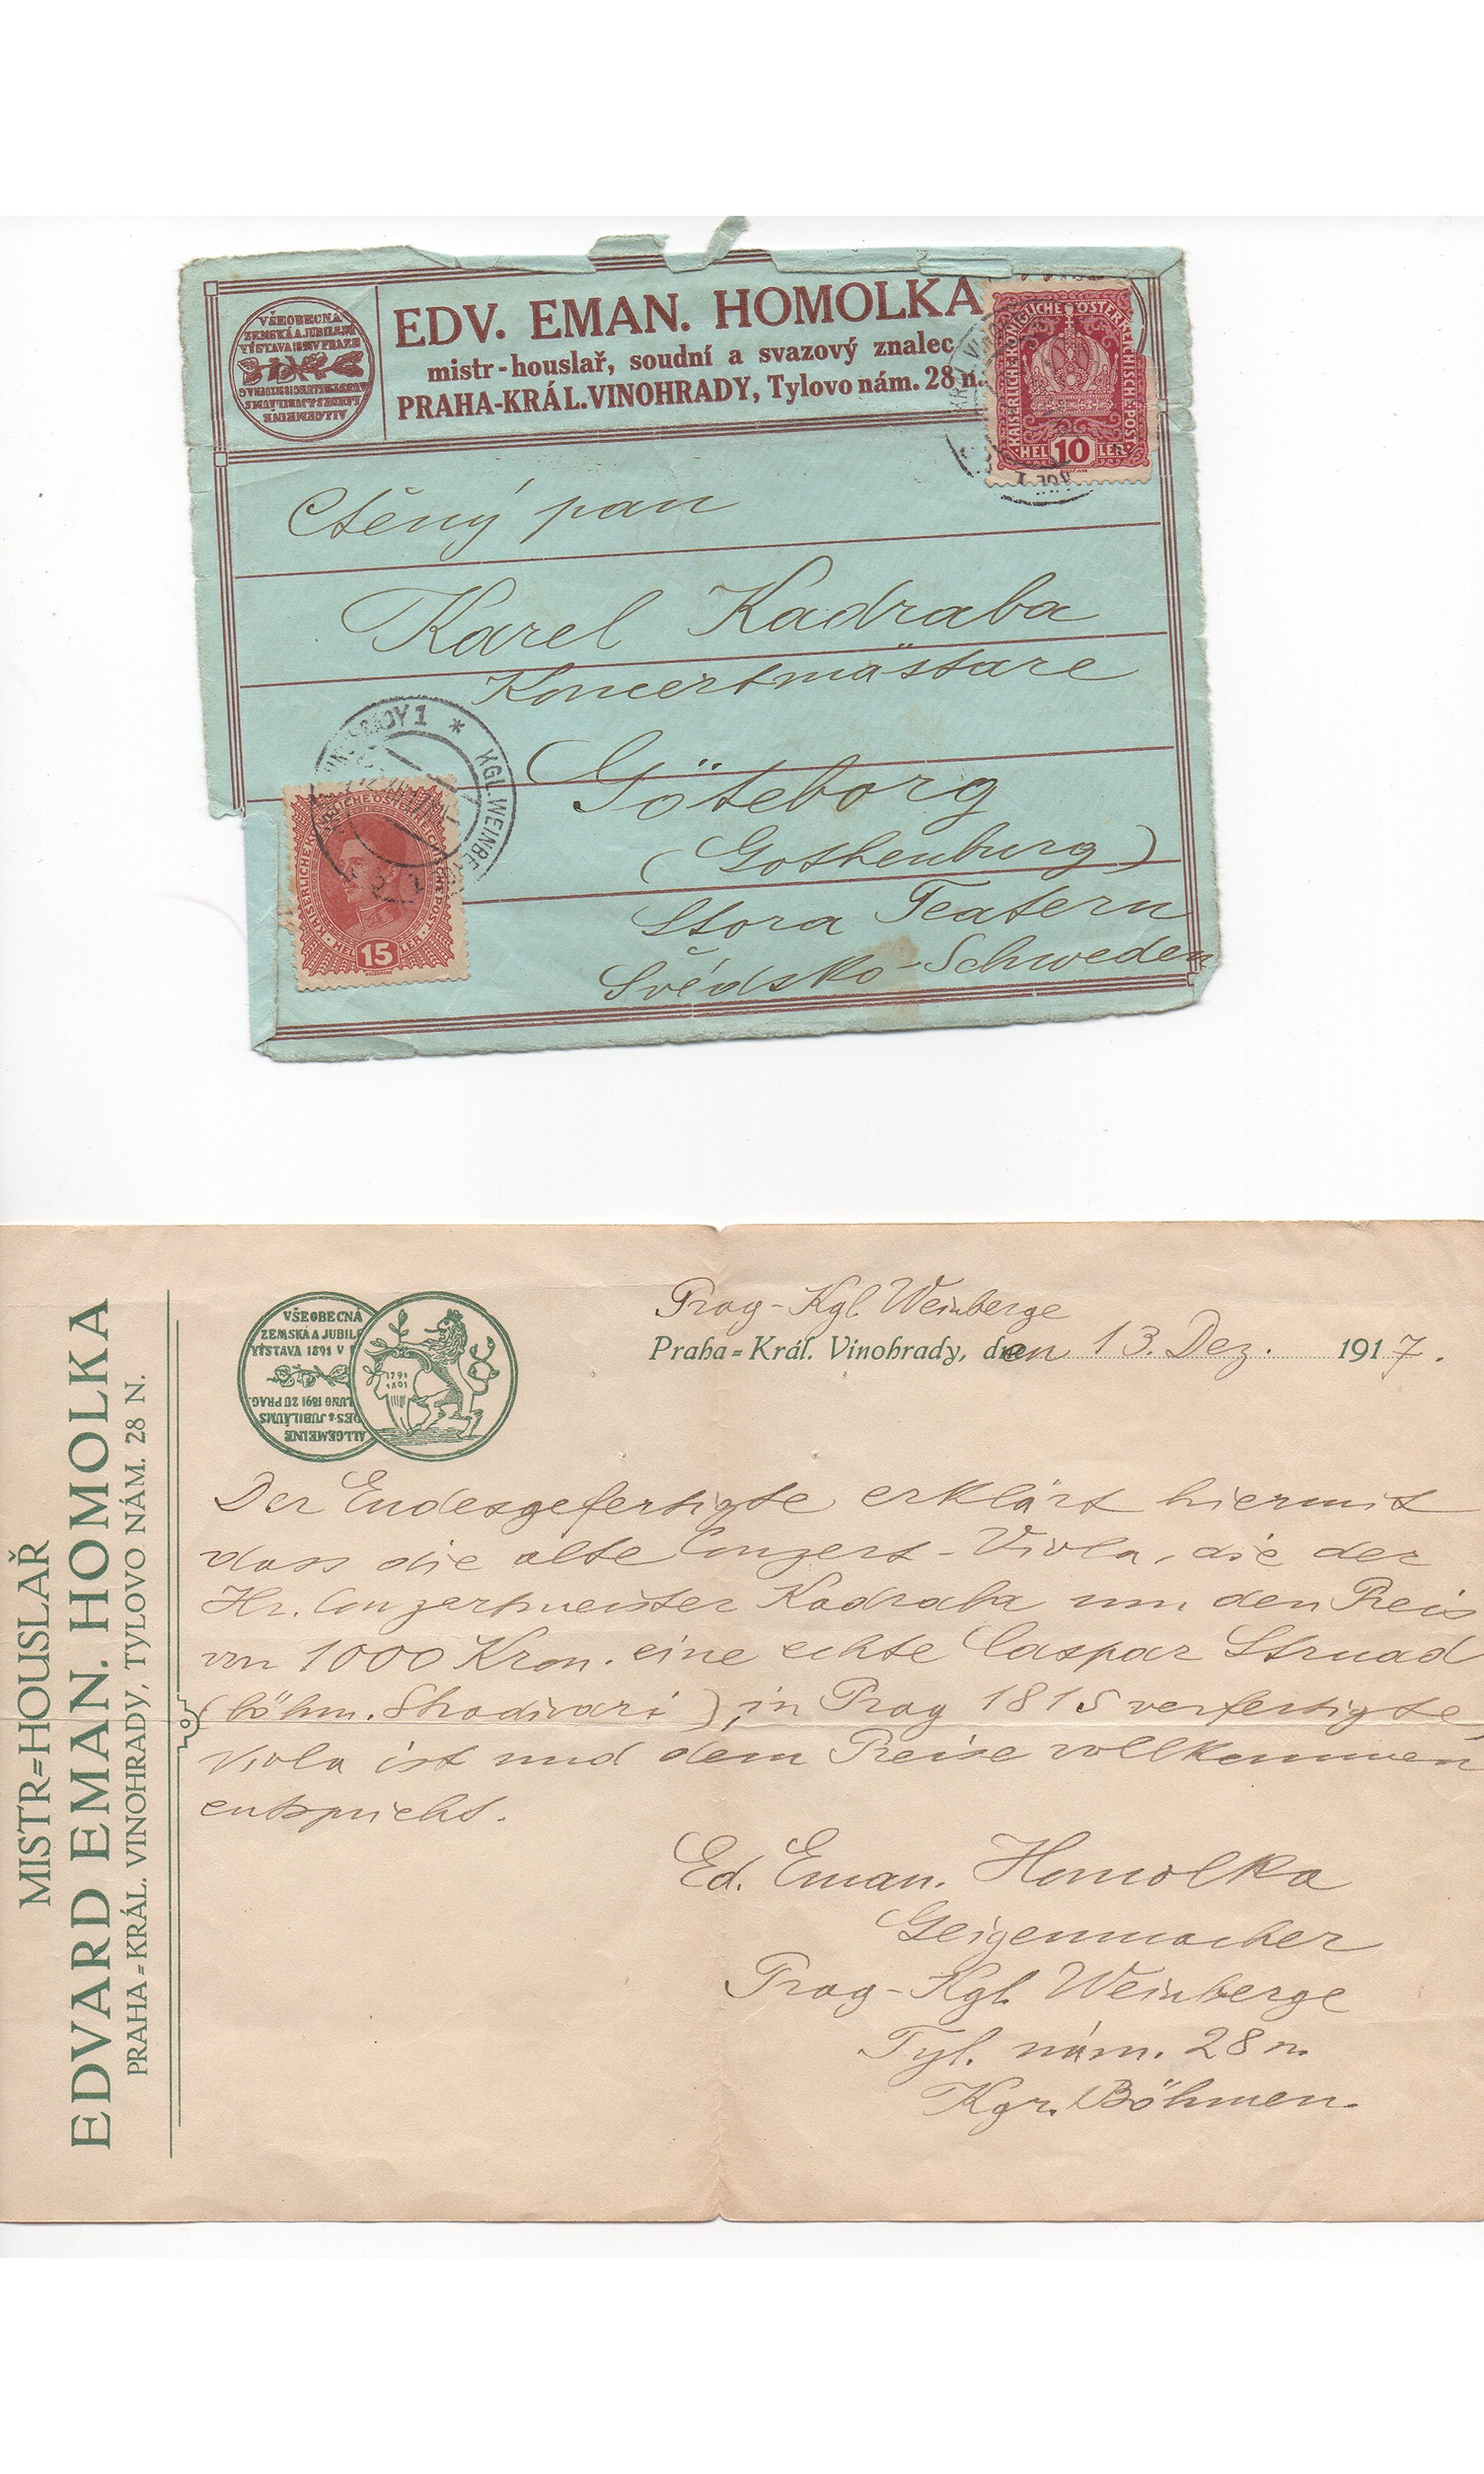 VŠEOBECNÁ
ZEMSKÁ A JUBILEJNÍ
VÝSTAVA 1891 V PRAZE
ALLGEMEINE
EDV. EMAN. HOMOLKA
mistr-houslař, soudní a svazový znalec
PRAHA-KRÁL. VINOHRADY, Tylovo nám. 28 n.
KAISERLICHE KÖNIGLICHE ÖSTERREICHISCHE POST
HEL 10 LER
Ctěný pan
Karel Kadraba
Koncertmästare
Göteborg
(Gothenburg)
Stora Teatern
Švédsko-Schweden
KGL. WEINBE
KAISERLICHE KÖNIGLICHE ÖSTERREICHISCHE POST
HEL 15 LER
MISTR=HOUSLAŘ
EDVARD EMAN. HOMOLKA
PRAHA=KRÁL. VINOHRADY, TYLOVO NÁM. 28 N.
VŠEOBECNÁ
ZEMSKÁ A JUBILE
VÝSTAVA 1891 V P
LUNG 1891 ZU PRAG.
DES & JUBILÄUMS
ALLGEMEINE
1791
1891
Prag-Kgl. Weinberge
Praha=Král. Vinohrady, den 13. Dez. 1917.
Der Endesgefertigte erklärt hiermit
dass die alte Conzert-Viola, die der
Hr. Conzertmeister Kadraba um den Preis
von 1000 Kron. eine echte Caspar Strnad
(böhm. Stradivari), in Prag 1815 verfertigte
Viola ist und dem Preise vollkommen
entspricht.
Ed. Eman. Homolka
Geigenmacher
Prag-Kgl. Weinberge
Tyl. nám. 28 n.
Kgr. Böhmen.